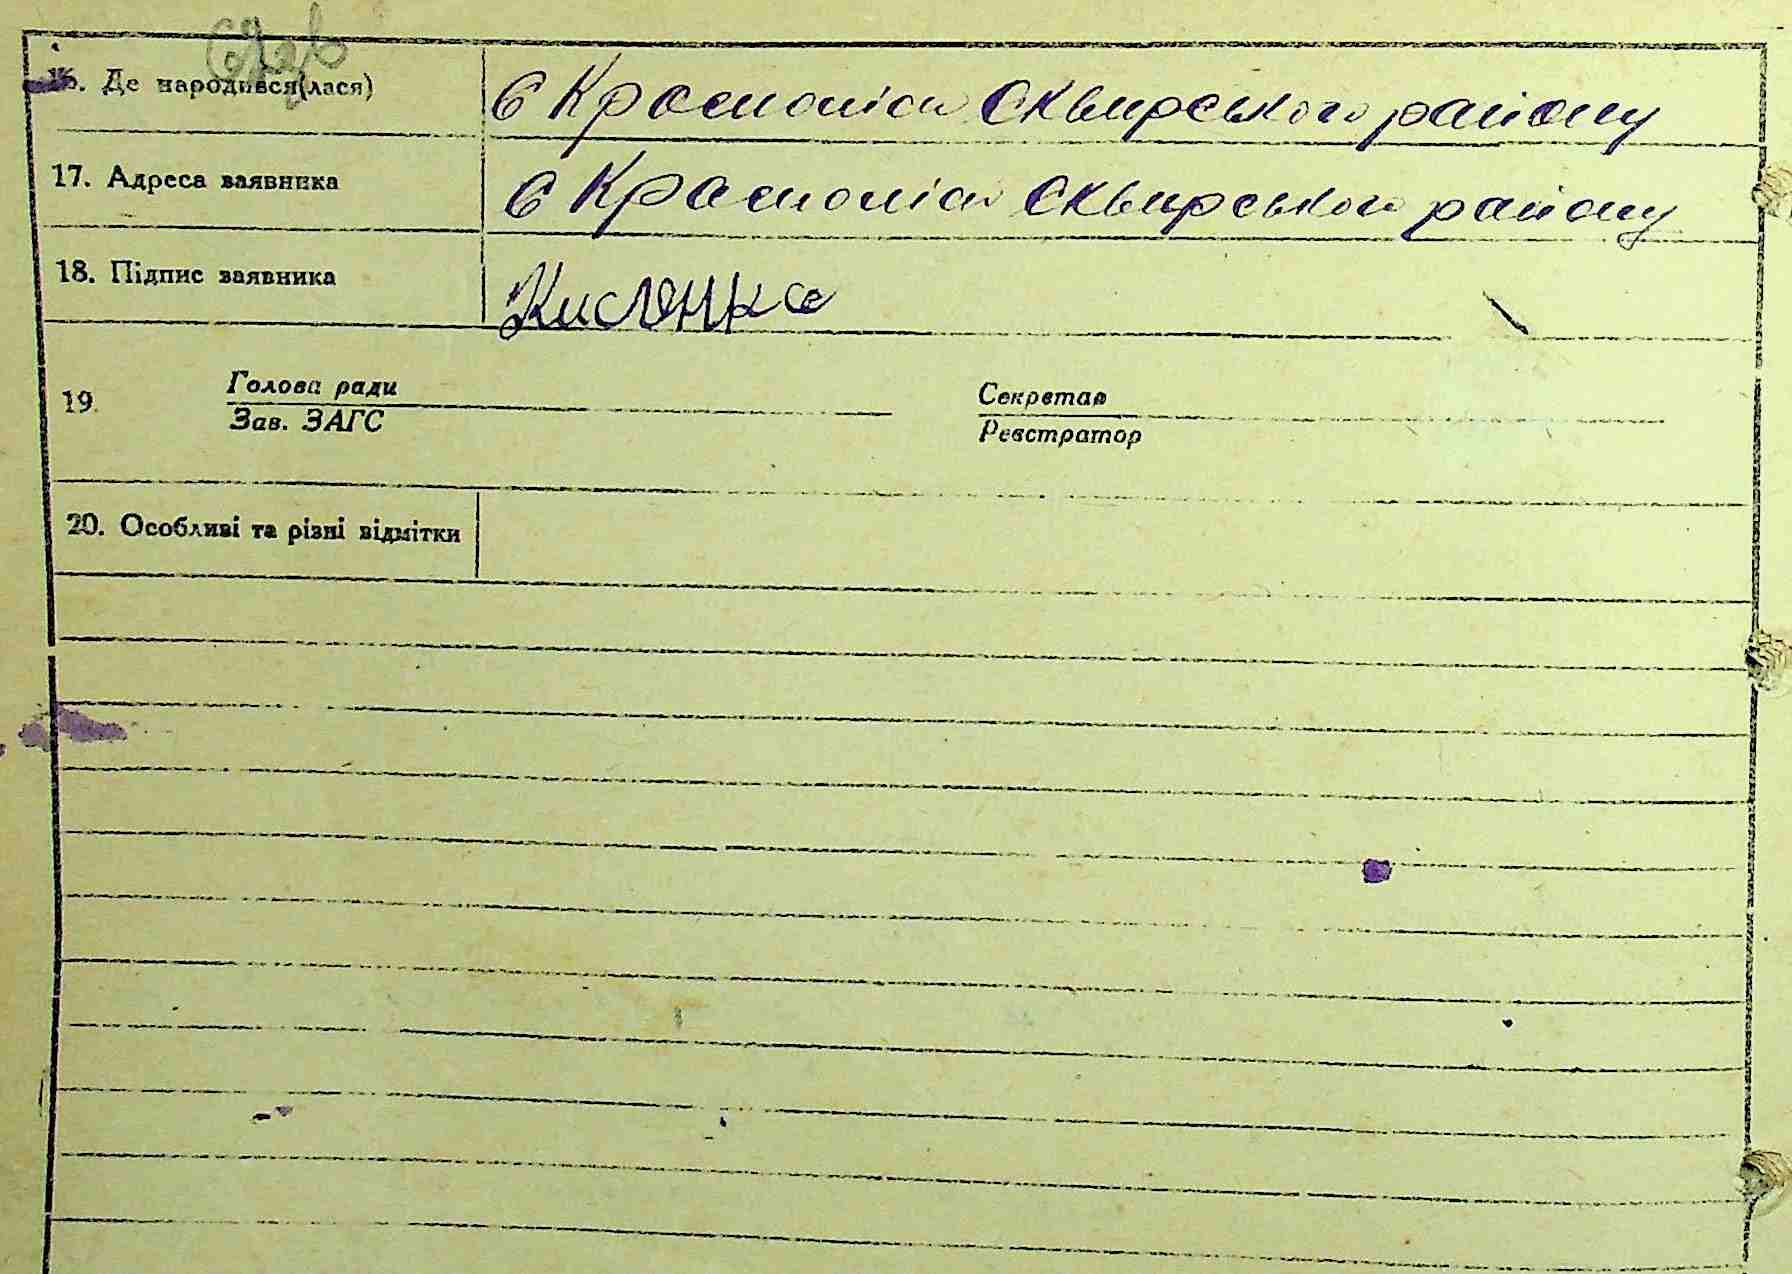 16. Де народився(лася) с Краснолісь Сквирського району
17. Адреса заявника с Краснолісь Сквирського району
18. Підпис заявника Кисленко
19. Голова ради Секретар
Зав. ЗАГС Реєстратор
20. Особливі та різні відмітки